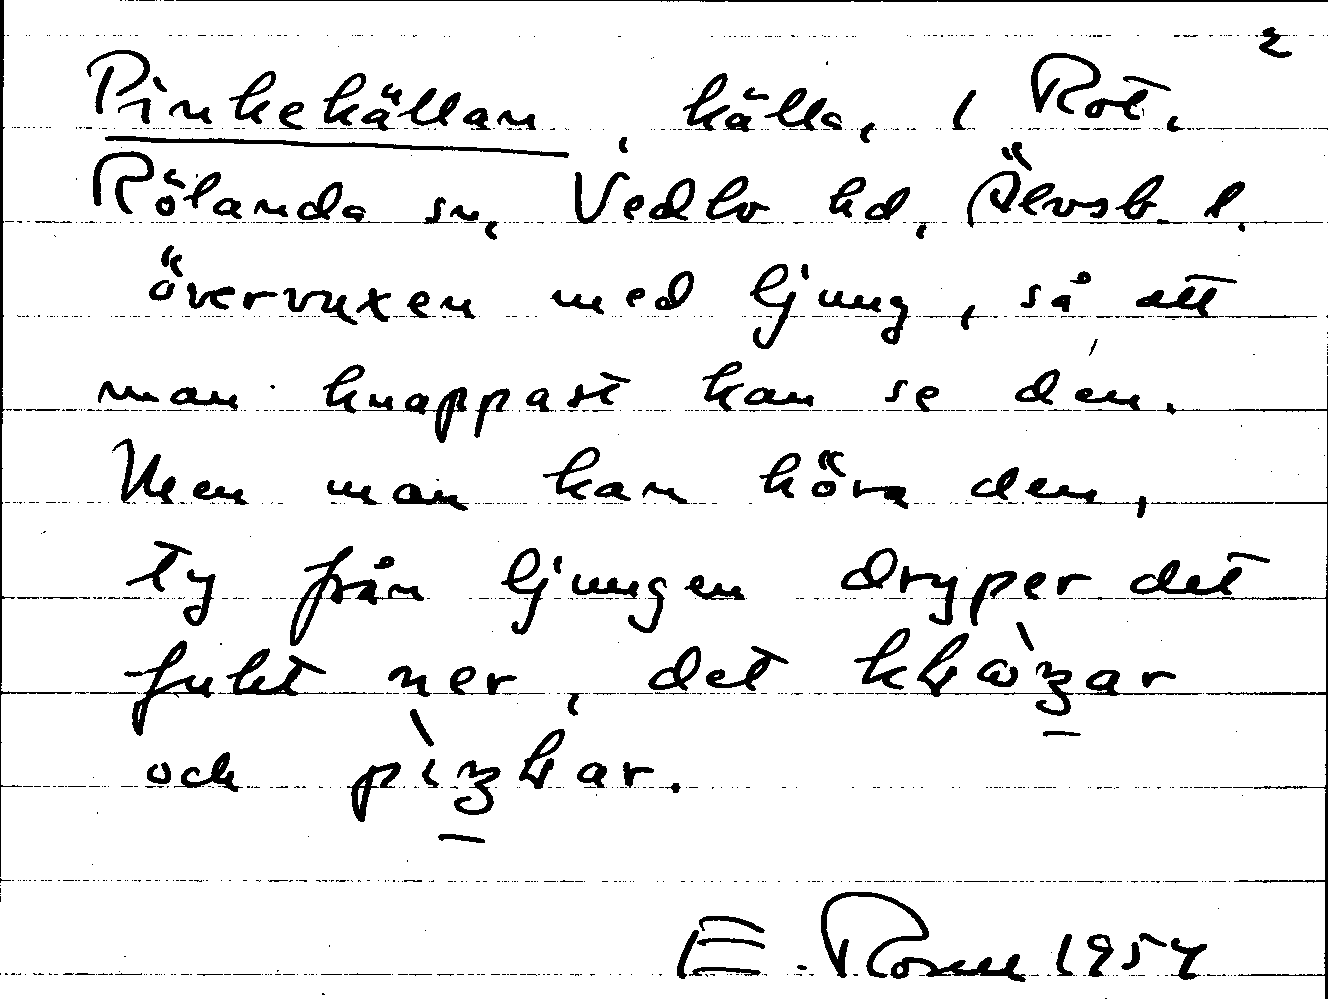 2
Pinkekällan, källa, i Rot.
Rölanda sn, Vedbo hd, Älvsb. l.
övervuxen med ljung, så att
man knappast kan se den.
Men man kan höra den,
ty från ljungen dryper det
fukt ner, det
och
E. 1954